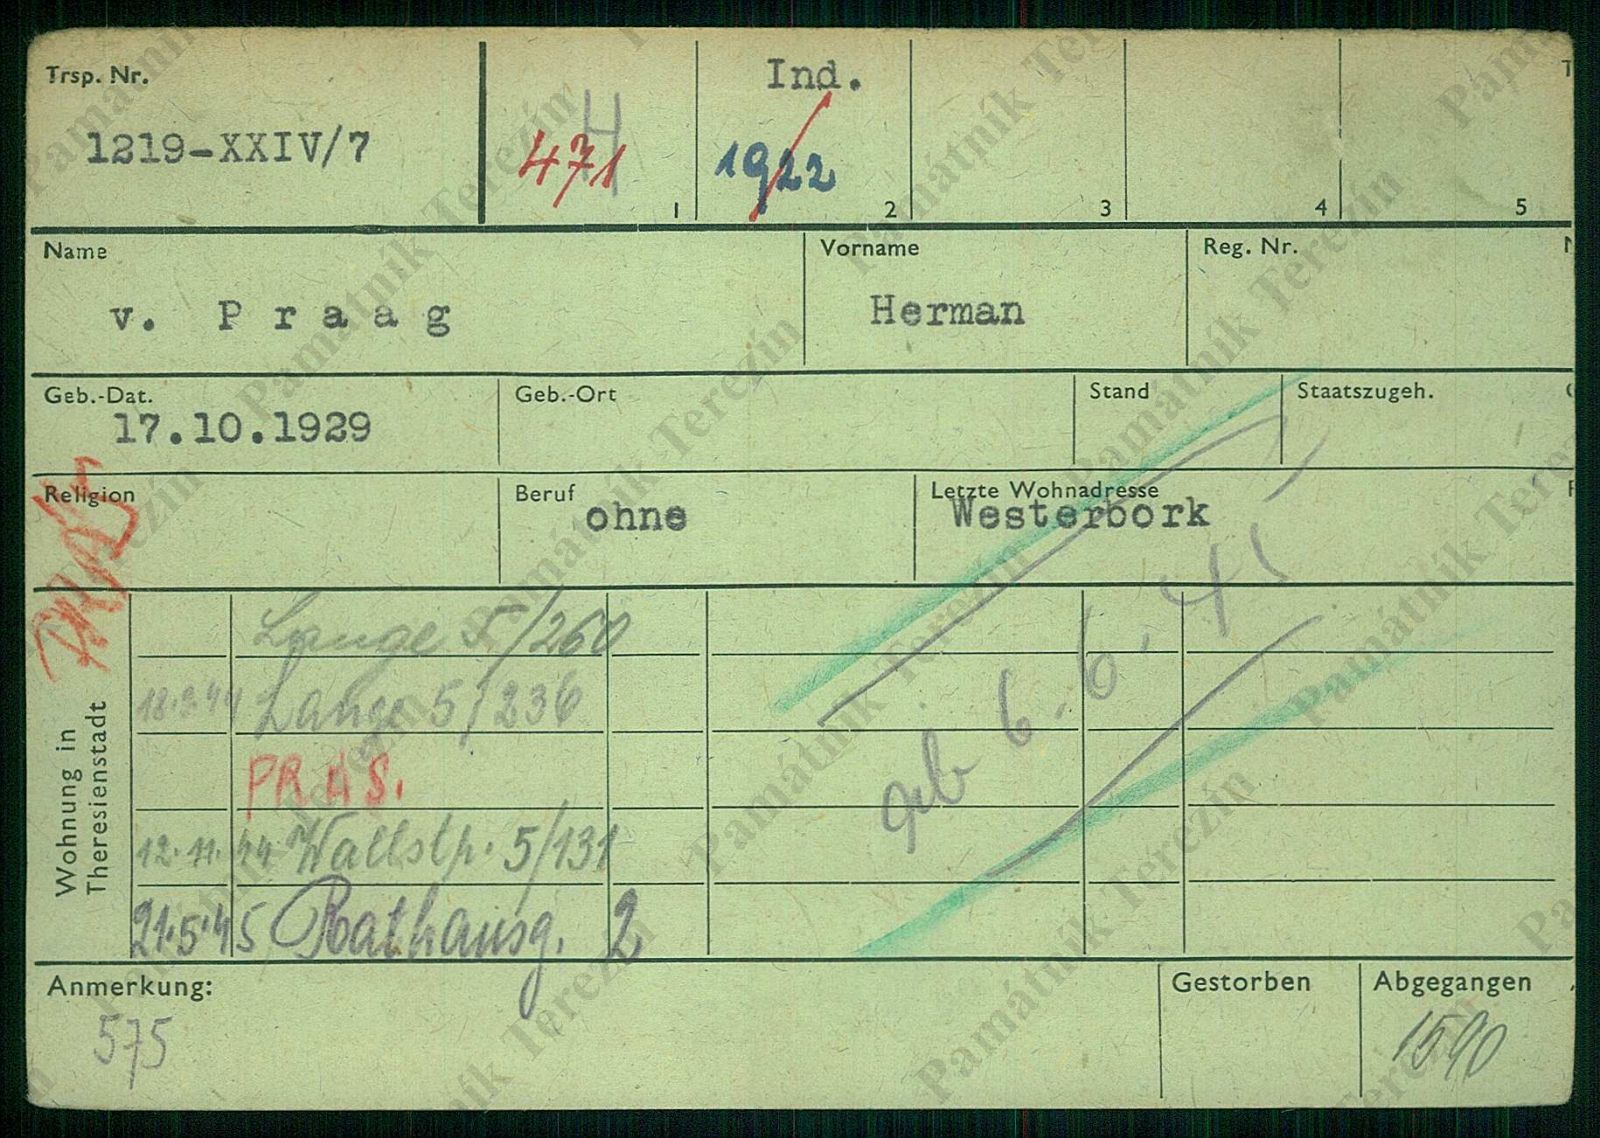 Trsp. Nr.
Ind.
1219-XXIV/7
471
1922
1
2
3
4
5
Name
Vorname
Reg. Nr.
v. Praag
Herman
Geb.-Dat.
Geb.-Ort
Stand
Staatszugeh.
17.10.1929
Religion
Beruf
Letzte Wohnadresse
ohne
Westerbork
Wohnung in Theresienstadt
Lange 5/260
18.9.44 Lange 5/236
PRÄS.
12.11.44 Wallstr. 5/131
21.5.45 Rathausg. 2
ab 6.6.45
Anmerkung:
Gestorben
Abgegangen
575
1590
Památník Terezín